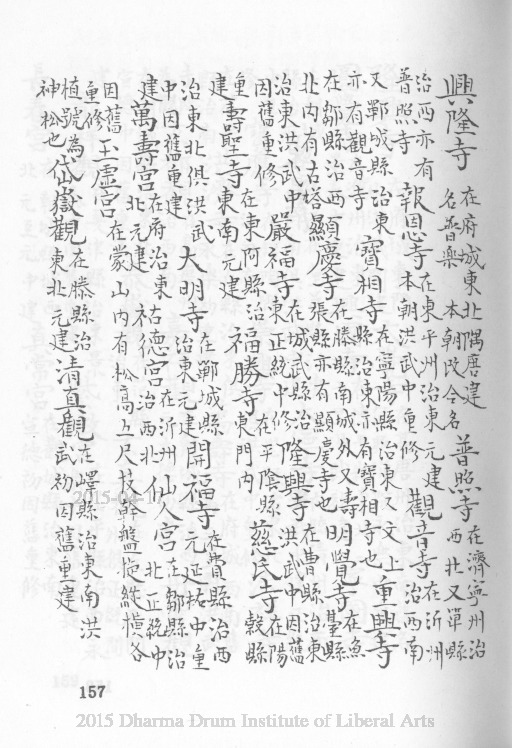 興隆寺 在府城東北隅唐建名普樂本朝改今名 普照寺 在濟寧州治西北又單縣
治西亦有普照寺 報恩寺 在東平州治東元建本朝洪武中重修 觀音寺 在沂州治西南
又鄆城縣治東亦有觀音寺 寶相寺 在寧陽縣治東又文上縣治東亦有寶相寺也 重興寺
在鄒縣治西北內有古塔 顯慶寺 在滕縣南城外又壽張縣亦有顯慶寺也 明覺寺 在魚臺縣
治東洪武中因舊重修 嚴福寺 在城武縣治東正統中修 隆興寺 在曹縣治東洪武中因舊
重建 壽聖寺 在東阿縣治東南元建 福勝寺 在平陰縣東門內 慈氏寺 在陽穀縣
治東北俱洪武中因舊重建 大明寺 在鄆城縣治東元建 開福寺 在費縣治西元延祐中重
建 萬壽宮 在府治東北元建 祐德宮 在沂州治西北 仙人宮 在鄒縣治北正統中
因舊重修 玉虛宮 在蒙山內有松高上尺枝幹盤旋縱橫各
植號為神松也 岱嶽觀 在滕縣治東北元建 清真觀 在嶧縣治東南洪武初因舊重建
157
2015 Dharma Drum Institute of Liberal Arts